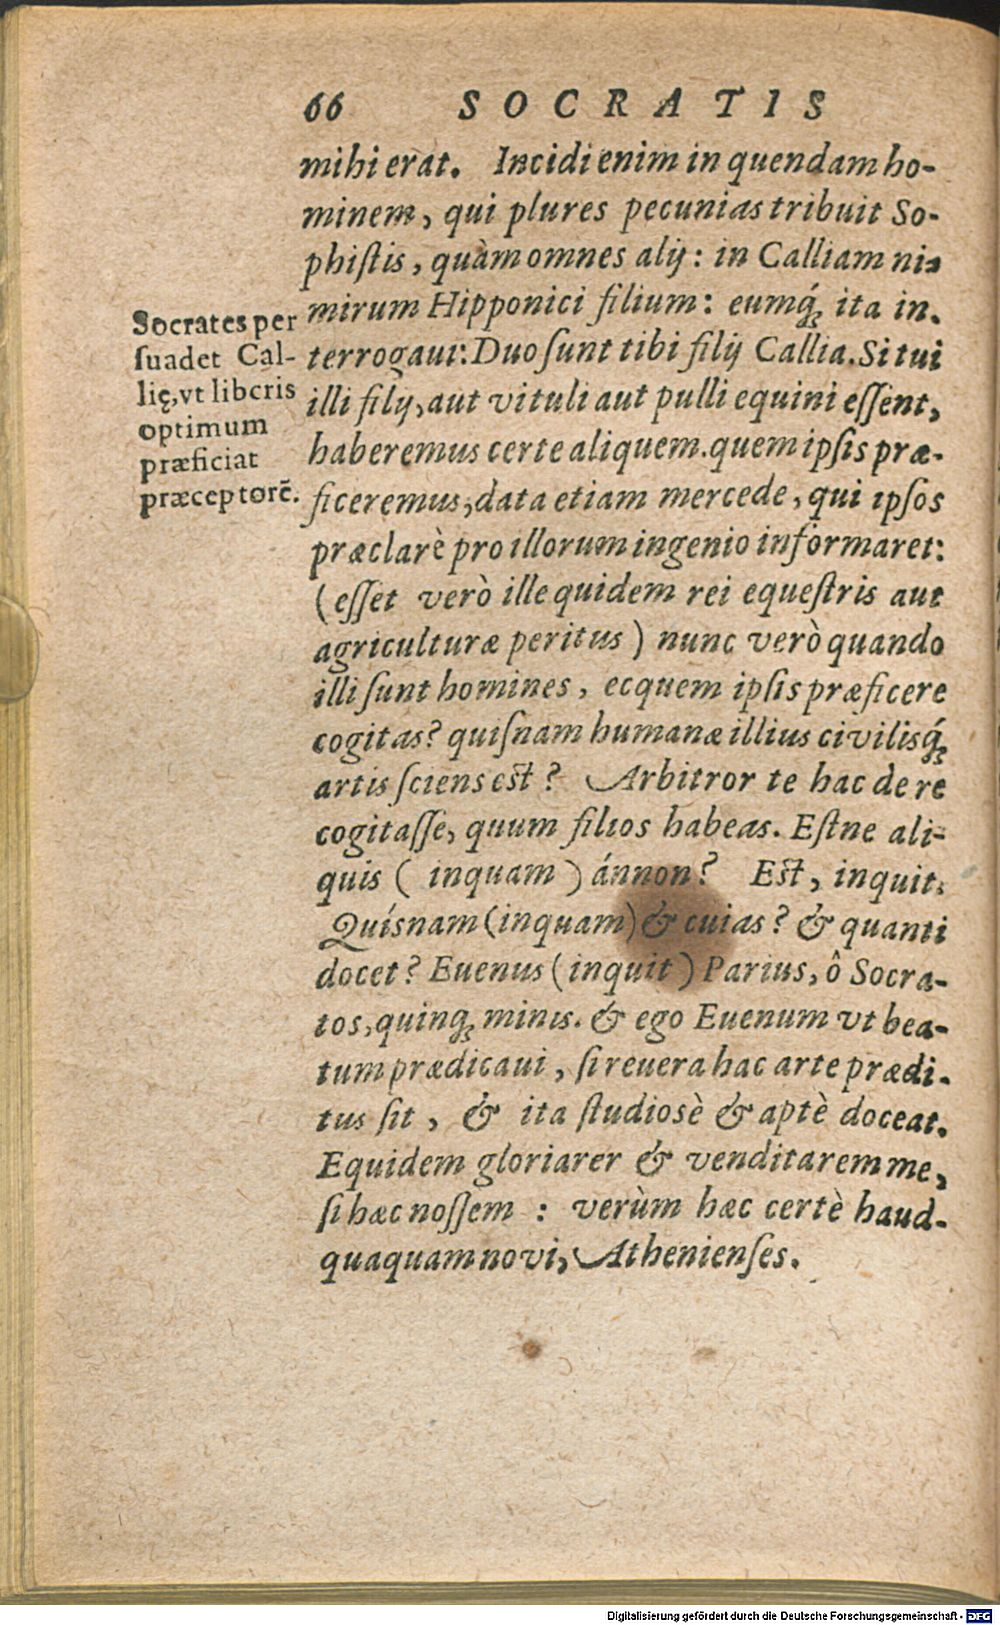 66 SOCRATIS
mihi erat. Incidi enim in quendam ho-
minem, qui plures pecunias tribuit So-
phiſtis, quàm omnes alij: in Calliam ni-
mirum Hipponici filium: eumq́ꝫ ita in-
terrogaui: Duo ſunt tibi filij Callia. Si tui
illi filij, aut vituli aut pulli equini eſſent,
haberemus certe aliquem. quem ipſis præ-
ficeremus, data etiam mercede, qui ipſos
præclarè pro illorum ingenio informaret:
(eſſet verò ille quidem rei equeſtris aut
agriculturæ peritus) nunc verò quando
illi ſunt homines, ecquem ipſis præficere
cogitas? quiſnam humanæ illius civilisq́ꝫ
artis ſciens eſt? Arbitror te hac de re
cogitaſſe, quum filios habeas. Eſtne ali-
quis (inquam) ánnon? Eſt, inquit.
Quísnam (inquam) & cuias? & quanti
docet? Euenus (inquit) Parius, ô Socra-
tos, quinqꝫ minis. & ego Euenum vt bea-
tum prædicaui, ſi reuera hac arte prædi-
tus ſit, & ita ſtudiosè & aptè doceat.
Equidem gloriarer & venditarem me,
ſi hæc noſſem : verùm hæc certè haud-
quaquam novi, Athenienſes.
Socrates per
ſuadet Cal-
lię, vt liberis
optimum
præficiat
præceptorē.
Digitalisierung gefördert durch die Deutsche Forschungsgemeinschaft - DFG